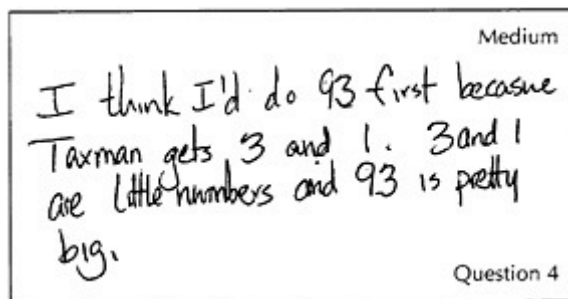 Medium
I think I'd do 93 first becasue
Taxman gets 3 and 1. 3 and 1
are little numbers and 93 is pretty
big.
Question 4